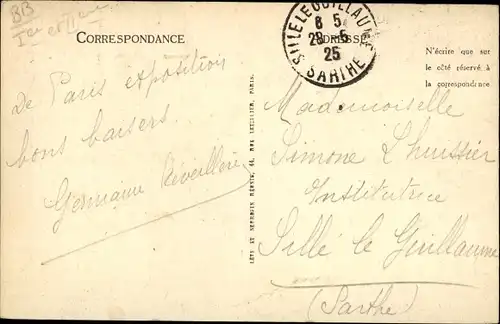 BB
Ier et IIème
CORRESPONDANCE
De Paris exposition
bons baisers
Germaine
LEVY ET NEURDEIN RÉUNIS, 44, RUE LETELLIER, PARIS.
SILLE LE GUILLAUME
8 5
29 5
25
SARTHE
ADRESSE
N'écrire que sur
le côté réservé à
la correspondance
Mademoiselle
Simone Lhuissier
Institutrice
Sillé le Guillaume
(Sarthe)